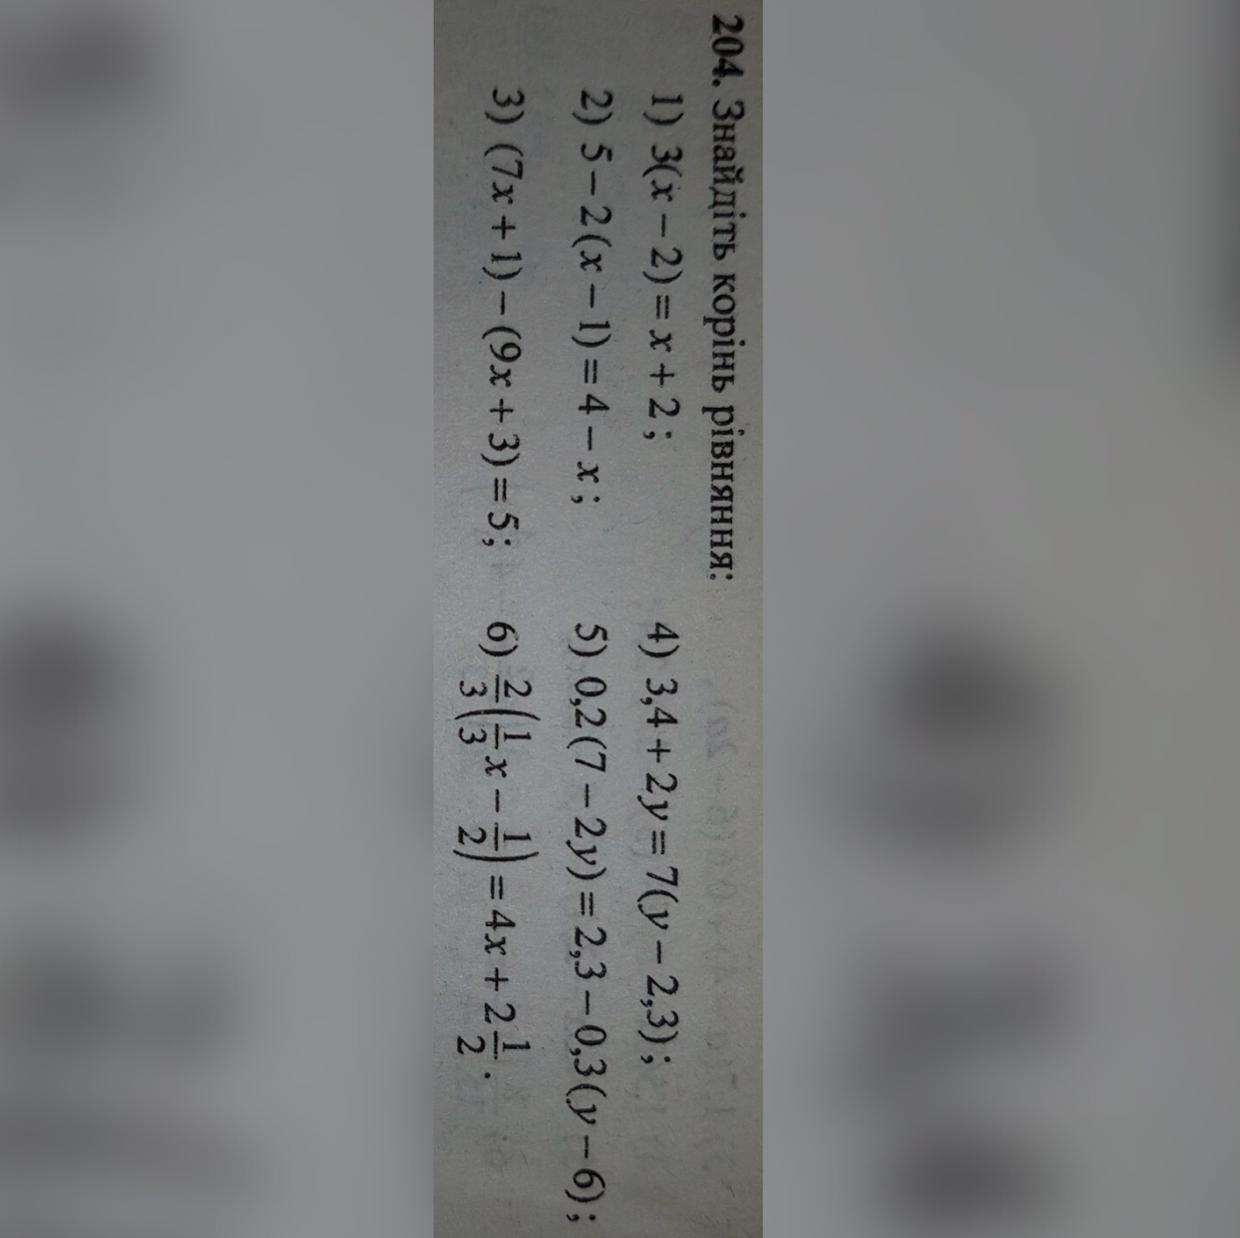 204. Знайдіть корінь рівняння:
1) 3(x − 2) = x + 2;
2) 5 − 2(x − 1) = 4 − x;
3) (7x + 1) − (9x + 3) = 5;
4) 3,4 + 2y = 7(y − 2,3);
5) 0,2(7 − 2y) = 2,3 − 0,3(y − 6);
6) 2/3(1/3x − 1/2) = 4x + 2 1/2.